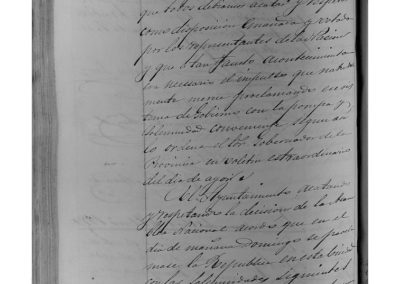 que todos debemos acatar y respetar
como disposicion emanada y votada
por los representantes de la Nacion
y que a tan fausto acontecimiento
es necesario el impulso que
mente merece proclamando ese sis
tema de Gobierno con la pompa y
solemnidad conveniente segun
lo ordena el Sor Gobernador de la
Provincia en boletin extraordinario
del dia de ayer.
El Ayuntamiento acatando
y respetando la decision de la Asam
blea Nacional acordó que en el
dia de mañana Domingo se procla
mase la República en esta
con las solemnidades siguientes